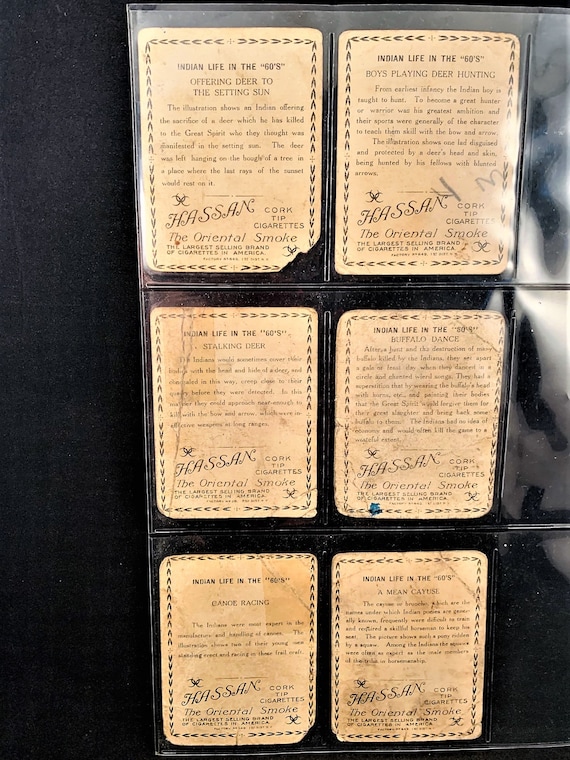 INDIAN LIFE IN THE "60'S"
OFFERING DEER TO
THE SETTING SUN
The illustration shows an Indian offering
the sacrifice of a deer which he has killed
to the Great Spirit who they thought was
manifested in the setting sun. The deer
was left hanging on the bough of a tree in
a place where the last rays of the sunset
would rest on it.
HASSAN CORK
TIP
CIGARETTES
The Oriental Smoke
THE LARGEST SELLING BRAND
OF CIGARETTES IN AMERICA.
INDIAN LIFE IN THE "60'S"
BOYS PLAYING DEER HUNTING
From earliest infancy the Indian boy is
taught to hunt. To become a great hunter
or warrior was his greatest ambition and
their sports were generally of the character
to teach them skill with the bow and arrow.
The illustration shows one lad disguised
and protected by a deer's head and skin,
being hunted by his fellows with blunted
arrows.
HASSAN CORK
TIP
CIGARETTES
The Oriental Smoke
THE LARGEST SELLING BRAND
OF CIGARETTES IN AMERICA.
INDIAN LIFE IN THE "60'S"
STALKING DEER
The Indians would sometimes cover their
bodies with the head and hide of a deer, and
concealed in this way, creep close to their
quarry before they were detected. In this
manner they could approach near enough to
kill with the bow and arrow, which were in-
effective weapons at long ranges.
HASSAN CORK
TIP
CIGARETTES
The Oriental Smoke
THE LARGEST SELLING BRAND
OF CIGARETTES IN AMERICA.
INDIAN LIFE IN THE "60'S"
BUFFALO DANCE
After a hunt and the destruction of many
buffalo killed by the Indians, they set apart
a gala or feast day when they danced in a
circle and chanted weird songs. They had a
superstition that by wearing the buffalo's head
with horns, etc., and painting their bodies
that the Great Spirit would forgive them for
their great slaughter and bring back some
buffalo to them. The Indians had no idea of
economy and would often kill the game to a
wasteful extent.
HASSAN CORK
TIP
CIGARETTES
The Oriental Smoke
THE LARGEST SELLING BRAND
OF CIGARETTES IN AMERICA.
INDIAN LIFE IN THE "60'S"
CANOE RACING
The Indians were most expert in the
manufacture and handling of canoes. The
illustration shows two of their young men
standing erect and racing in these frail craft.
HASSAN CORK
TIP
CIGARETTES
The Oriental Smoke
THE LARGEST SELLING BRAND
OF CIGARETTES IN AMERICA.
INDIAN LIFE IN THE "60'S"
A MEAN CAYUSE
The cayuse or broncho, which are the
names under which Indian ponies are gener-
ally known, frequently were difficult to train
and required a skillful horseman to keep his
seat. The picture shows such a pony ridden
by a squaw. Among the Indians the squaws
were often as expert as the male members
of the tribe in horsemanship.
HASSAN CORK
TIP
CIGARETTES
The Oriental Smoke
THE LARGEST SELLING BRAND
OF CIGARETTES IN AMERICA.